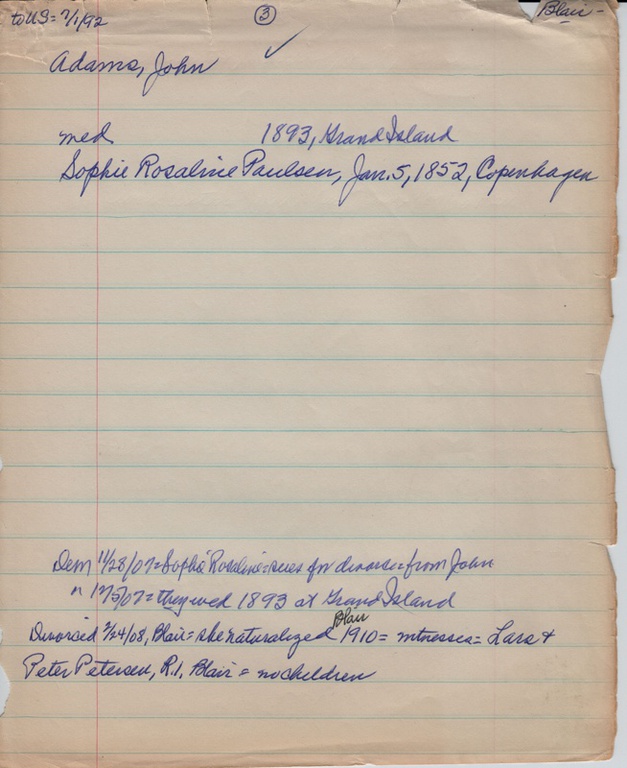 to US = 7/1/92 3 Blair -
Adams, John
med 1893, Grand Island
Sophie Rosaline Paulsen, Jan. 5, 1852, Copenhagen
Dem 11/28/07 = Sophie "Rosaline" = sues for divorce = from John
" 12/5/07 = they wed 1893 at Grand Island
Blair
Divorced 2/24/08, Blair = she naturalized 1910 = witnesses = Lars &
Peter Petersen, R.1, Blair = no children